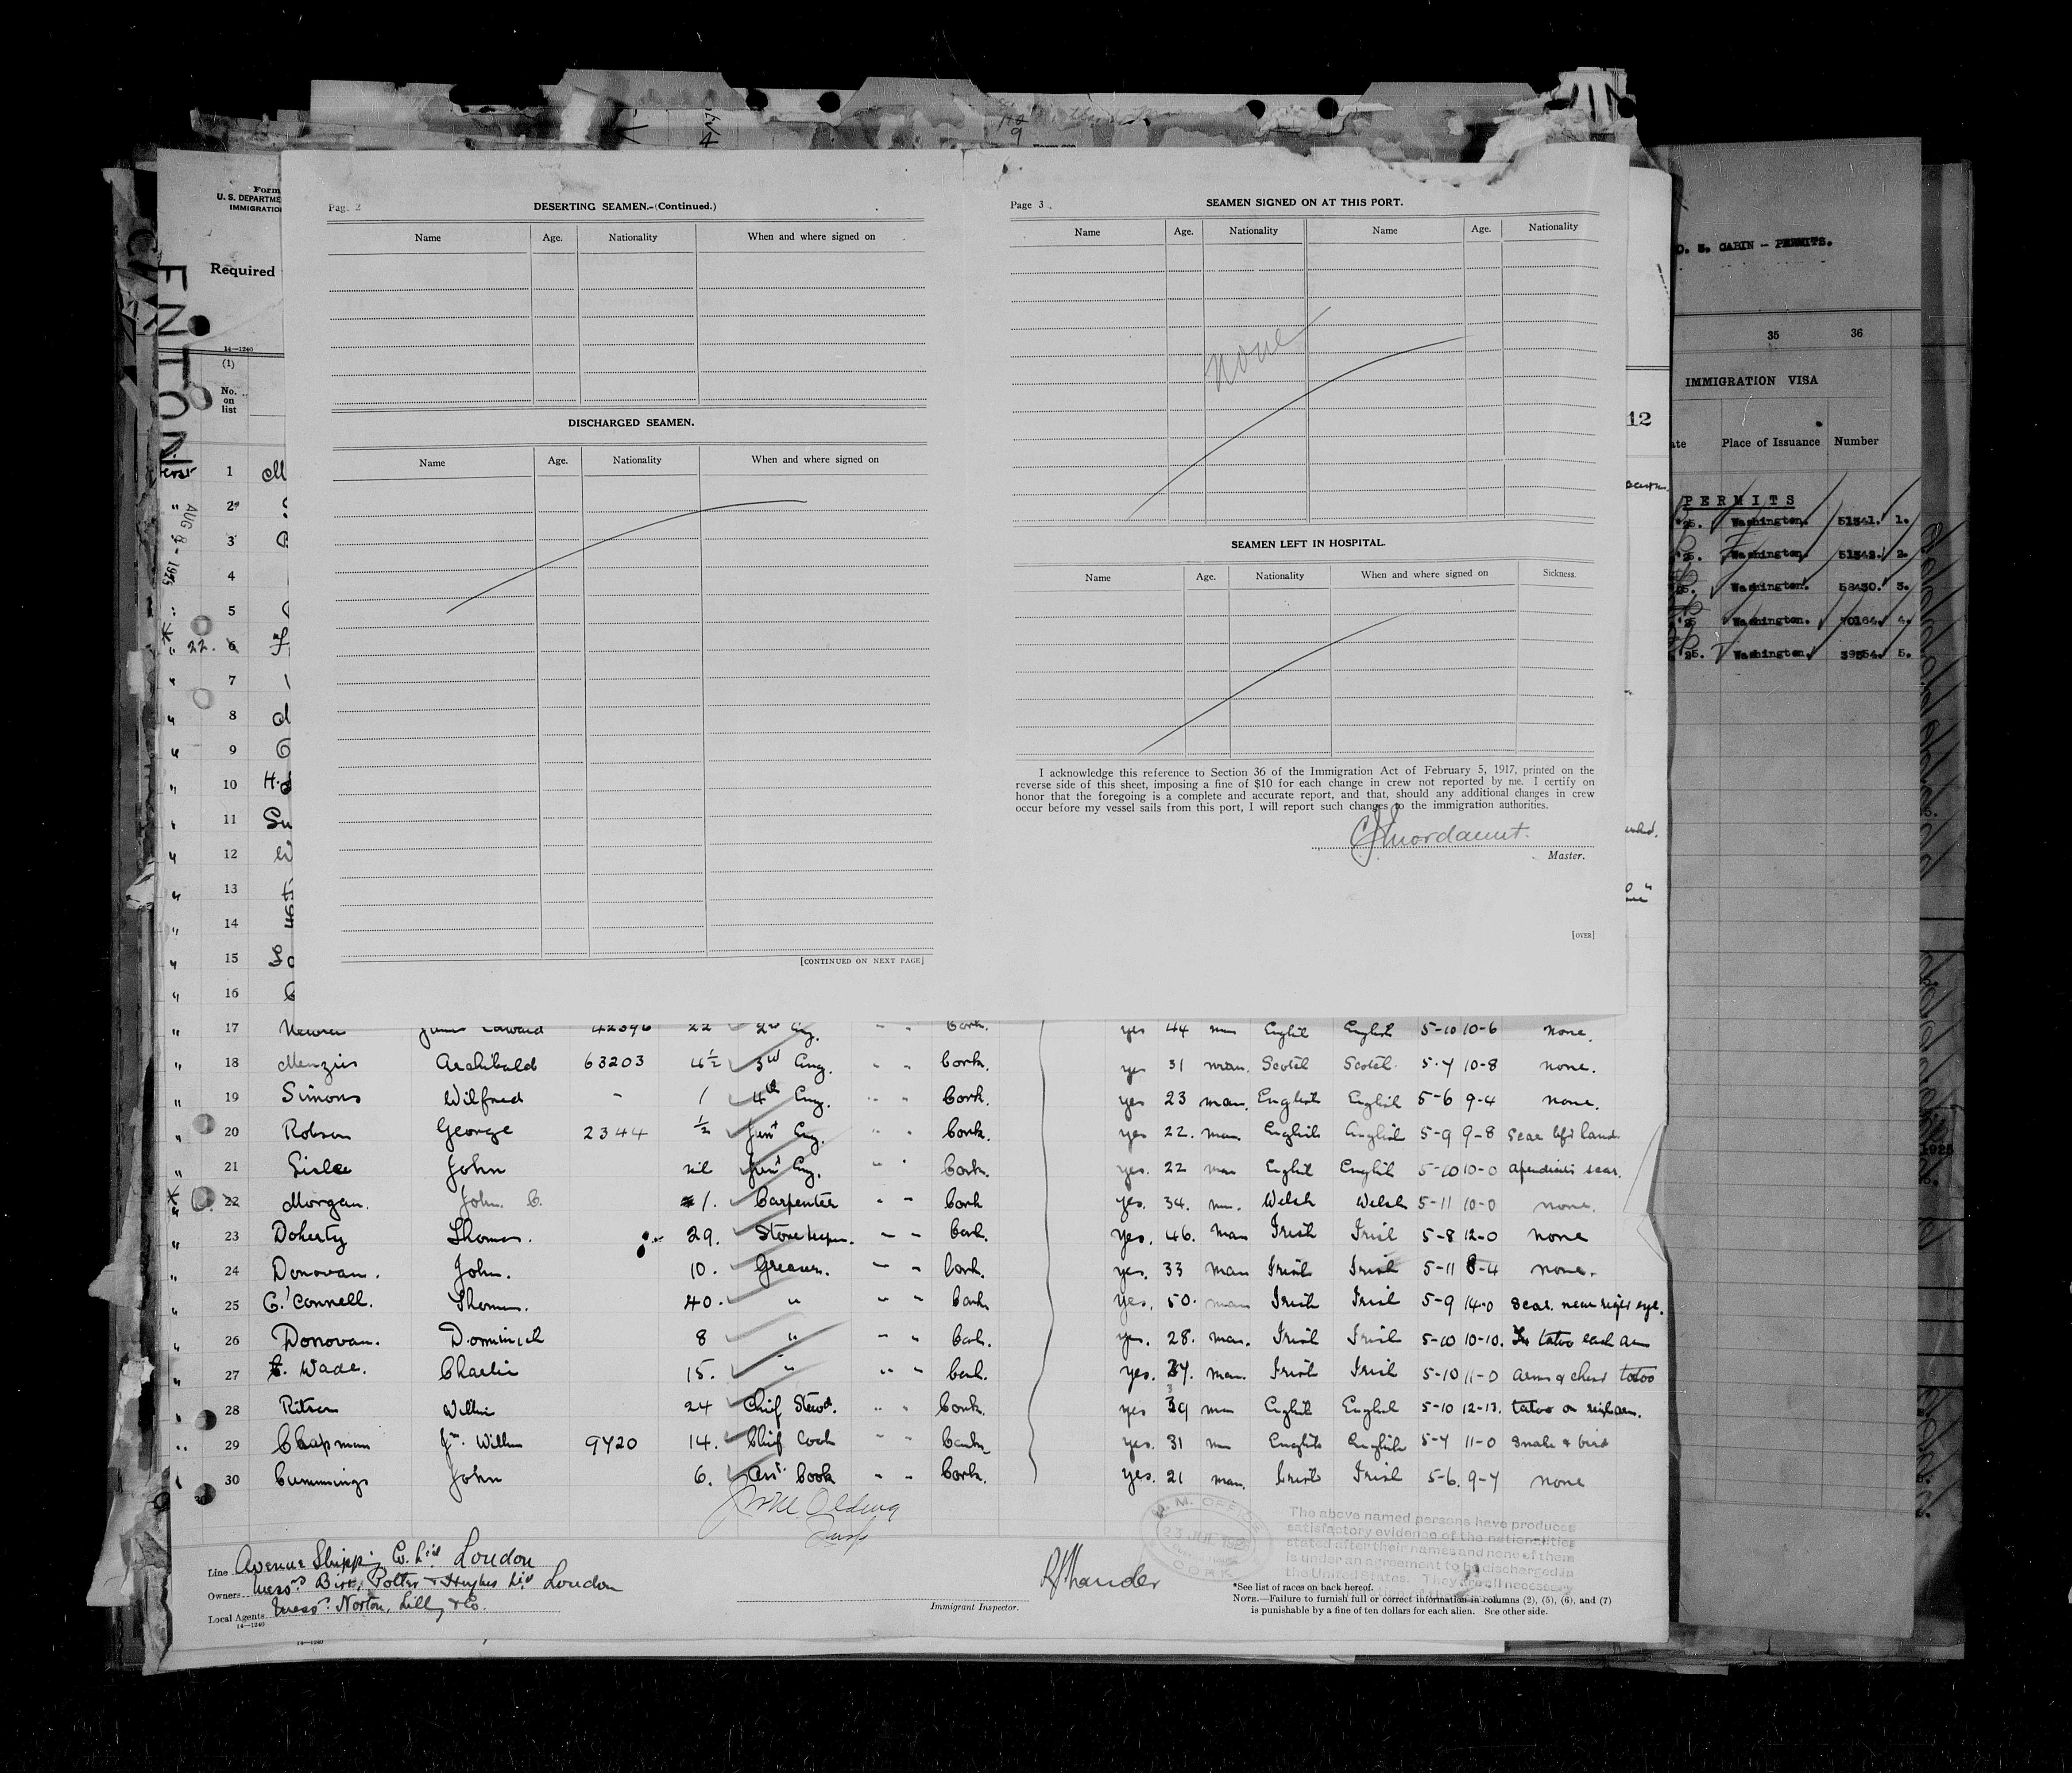 Form
U. S. DEPARTME
IMMIGRATIO
Required
FENTON
14—1240
(1)
No.
on
list
AUG 8 - 1925
Page 2
DESERTING SEAMEN.-(Continued.)
Name Age. Nationality When and where signed on
DISCHARGED SEAMEN.
Name Age. Nationality When and where signed on
[CONTINUED ON NEXT PAGE]
Page 3
SEAMEN SIGNED ON AT THIS PORT.
Name Age. Nationality Name Age. Nationality
None
SEAMEN LEFT IN HOSPITAL.
Name Age. Nationality When and where signed on Sickness.
I acknowledge this reference to Section 36 of the Immigration Act of February 5, 1917, printed on the
reverse side of this sheet, imposing a fine of $10 for each change in crew not reported by me. I certify on
honor that the foregoing is a complete and accurate report, and that, should any additional changes in crew
occur before my vessel sails from this port, I will report such changes to the immigration authorities.
Master.
[OVER]
12
CABIN — PERMITS.
35 36
IMMIGRATION VISA
Place of Issuance Number
PERMITS
25. Washington. 51341. 1.
25. Washington. 51342. 2.
25. Washington. 58430. 3.
25 Washington. 70164. 4.
25. Washington. 39554. 5.
1
2
3
4
5
22. 6
7
8
9
10
11
12
13
14
15
16
17 James Edward 42396 22 2nd Eng. " " Cork. yes 44 man English English 5-10 10-6 none.
18 Menzies Archibald 63203 4½ 3rd Eng. " " Cork. yes 31 man. Scotch Scotch 5-7 10-8 none.
19 Simons Wilfred - 1 4th Eng. " " Cork. yes 23 man. English English 5-6 9-4 none.
20 Robson George 2344 ½ Junr Eng. " " Cork. yes 22. man. English English 5-9 9-8 Scar left hand.
21 John nil Junr Eng. " " Cork. yes. 22 man English English 5-10 10-0 apendicitis scar.
22 Morgan. John C. 1. Carpenter " " Cork yes. 34. man. Welsh Welsh 5-11 10-0 none.
23 Doherty Thomas. 29. Storekeeper. " " Cork. yes. 46. man Irish Irish 5-8 12-0 none
24 Donovan. John. 10. Greaser. " " Cork. yes. 33 man Irish Irish 5-11 8-4 none.
25 O'Connell. Thomas. 40. " " " Cork yes. 50. man Irish Irish 5-9 14-0 Scar. near right eye.
26 Donovan. Dominick 8 " " " Cork. yes. 28. man. Irish Irish 5-10 10-10. tatoo each arm
27 Wade. Charlie 15. " " " Cork. yes. 37. man. Irish Irish 5-10 11-0 arms & chest tatoo
28 Ritson Willie 24 Chief Stewd. " " Cork. yes 39 man English English 5-10 12-13. tatoo on right arm.
29 Chapman Jn. William 9420 14. Chief Cook " " Cork yes. 31 man English English 5-7 11-0 Snake & bird
30 Cummings John 6. Asst. Cook " " Cork. yes. 21 man. Irish Irish 5-6. 9-7 none
Line Avenue Shipping Co. Ltd London
Owners Messrs Birt, Potter & Hughes Ltd London
Local Agents Messrs. Norton, Lilly & Co.
14—1240
Immigrant Inspector.
M. M. OFFICE
23 JUL 1925
CORK
The above named persons have produced
satisfactory evidence of the nationalities
stated after their names and none of them
is under an agreement to be discharged in
the United States. They are all necessary
*See list of races on back hereof.
NOTE.—Failure to furnish full or correct information in columns (2), (5), (6), and (7)
is punishable by a fine of ten dollars for each alien. See other side.